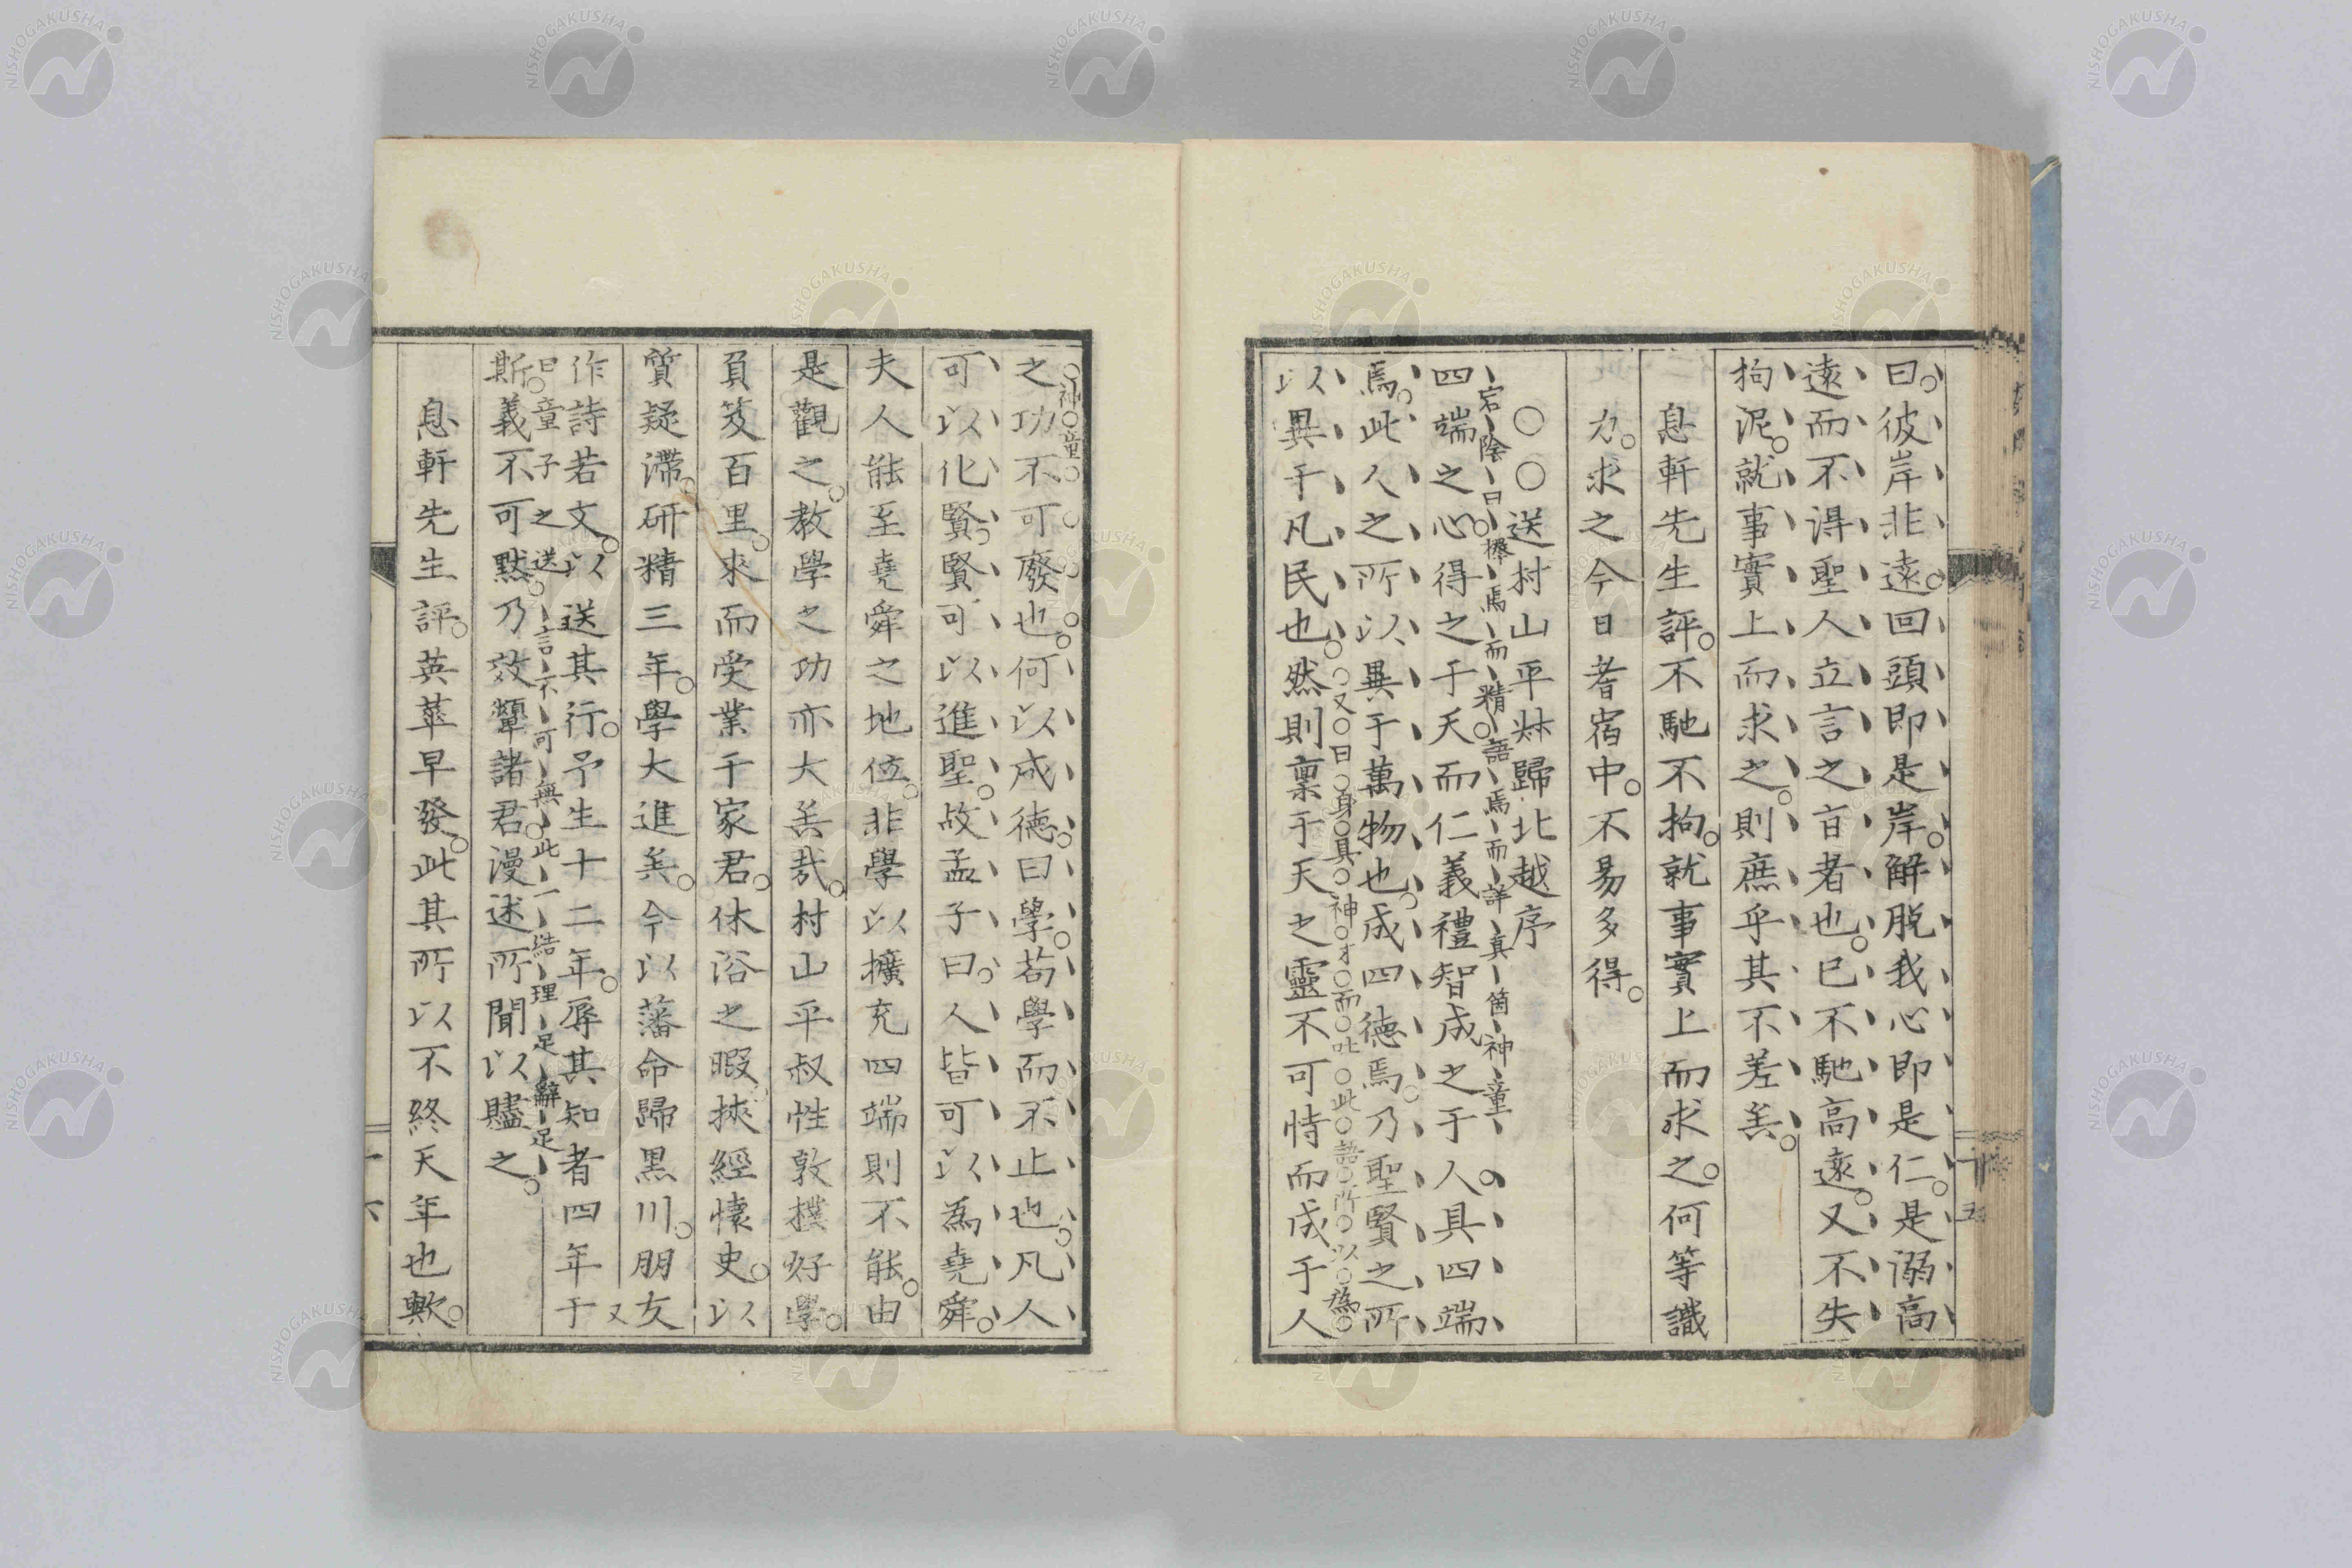 曰彼岸非遠回頭即是岸解脱我心即是仁是溺高
遠而不得聖人立言之旨者也已不馳高遠又不失
拘泥就事實上而求之則庶乎其不差矣
息軒先生評不馳不拘就事實上而求之何等識
力求之今日耆宿中不易多得
○○送村山平叔歸北越序
宕陰曰擇焉而精語焉而詳真箇神童
四端之心得之于天而仁義禮智成之于人具四端
焉此人之所以異于萬物也成四德焉乃聖賢之所
又曰身具神才而吐此語所以為
以異于凡民也然則稟于天之靈不可恃而成于人
神童
之功不可廢也何以成德曰學苟學而不止也凡人
可以化賢賢可以進聖故孟子曰人皆可以為堯舜
夫人能至堯舜之地位非學以擴充四端則不能由
是觀之教學之功亦大矣哉村山平叔性敦樸好學
負笈百里來而受業于家君休浴之暇挾經懷史以
質疑滯研精三年學大進矣今以藩命歸黑川朋友
作詩若文以送其行予生十二年辱其知者四年于
又曰童子之送言不可無此一結理足辭足
斯義不可默乃效顰諸君漫述所聞以贐之
息軒先生評英華早發此其所以不終天年也歟
十五
十六
NISHOGAKUSHA